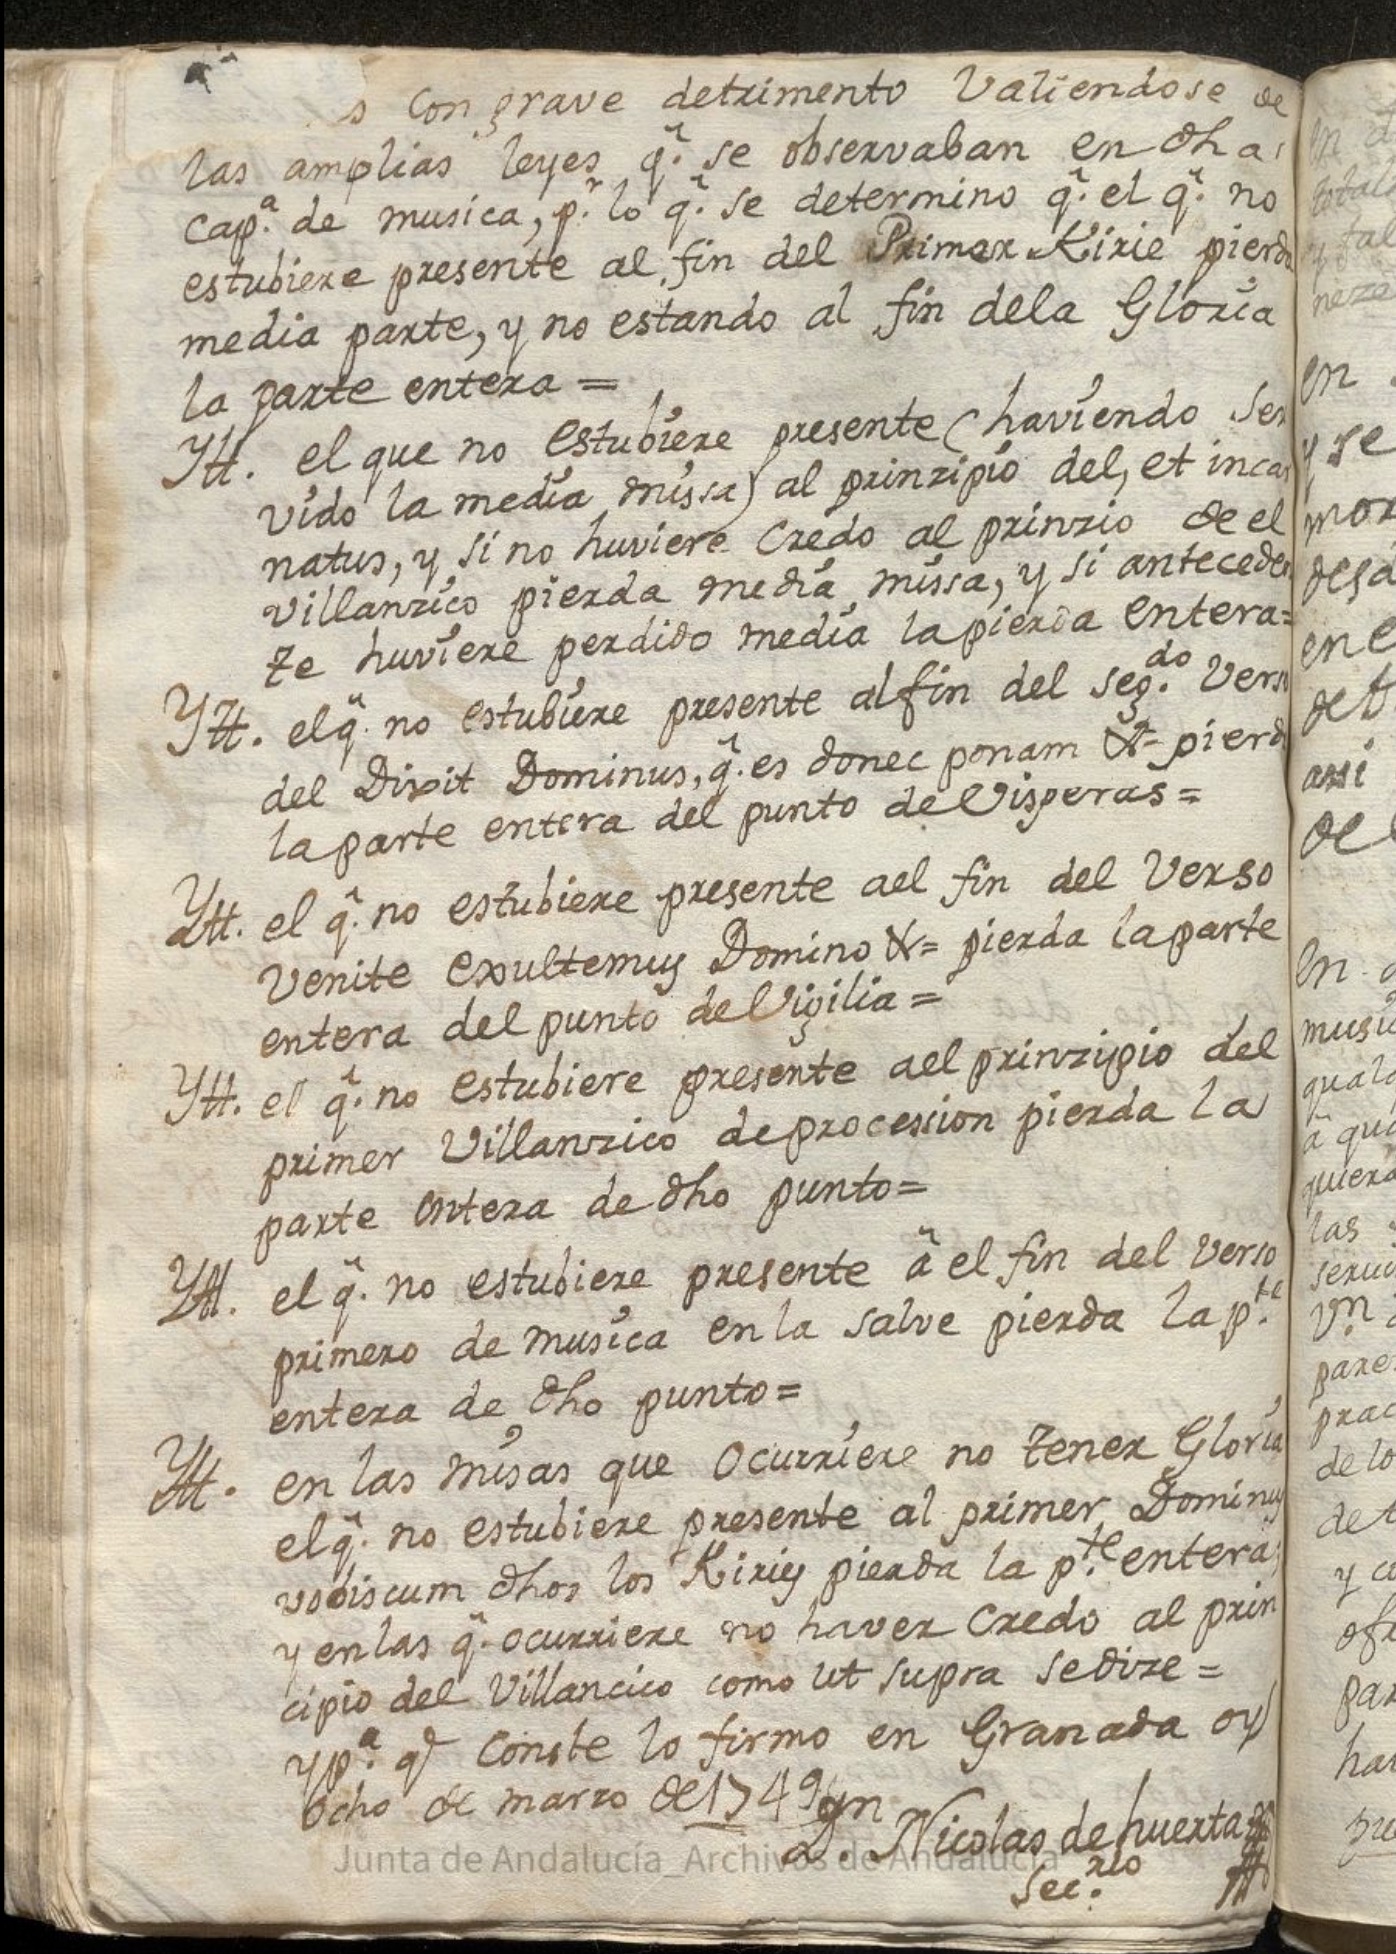 s con grave detrimento valiendose de
las amplias leyes q.̃ se observaban en dha
cap.ª de musica, p.r lo q.̃ se determino q.̃ el q.̃ no
estubiere presente al fin del Primer Kirie pierda
media parte, y no estando al fin dela Gloria
la parte entera =
Ytt. el que no estubiere presente (haviendo ser
vido la media missa) al prinzipio del, et incar
natus, y si no huviere Credo al prinzio de el
villanzico pierda media missa, y si anteceden
te huviere perdido media la pierda entera=
Ytt. el q.̃ no estubiere presente al fin del seg.do Verso
del Dixit Dominus, q.̃ es donec ponam &= pierda
la parte entera del punto de Visperas=
Ytt. el q.̃ no estubiere presente ael fin del Verso
Venite exultemus Domino &= pierda la parte
entera del punto de Vigilia=
Ytt. el q.̃ no estubiere presente ael prinzipio del
primer Villanzico de procession pierda la
parte entera de dho punto=
Ytt. el q.̃ no estubiere presente â el fin del verso
primero de musica en la salve pierda la p.te
entera de dho punto=
Ytt. en las misas que ocurriere no tener Gloria
el q.̃ no estubiere presente al primer Dominus
vobiscum dhos los Kiries pierda la p.te entera;
y en las q.̃ ocurriere no haver Credo al prin
cipio del Villancico como ut supra se dize=
y p.ª q.e conste lo firmo en Granada oy
ocho de marzo de 1749
D.n Nicolas de huerta
Sec.rio
Junta de Andalucía_Archivos de Andalucía